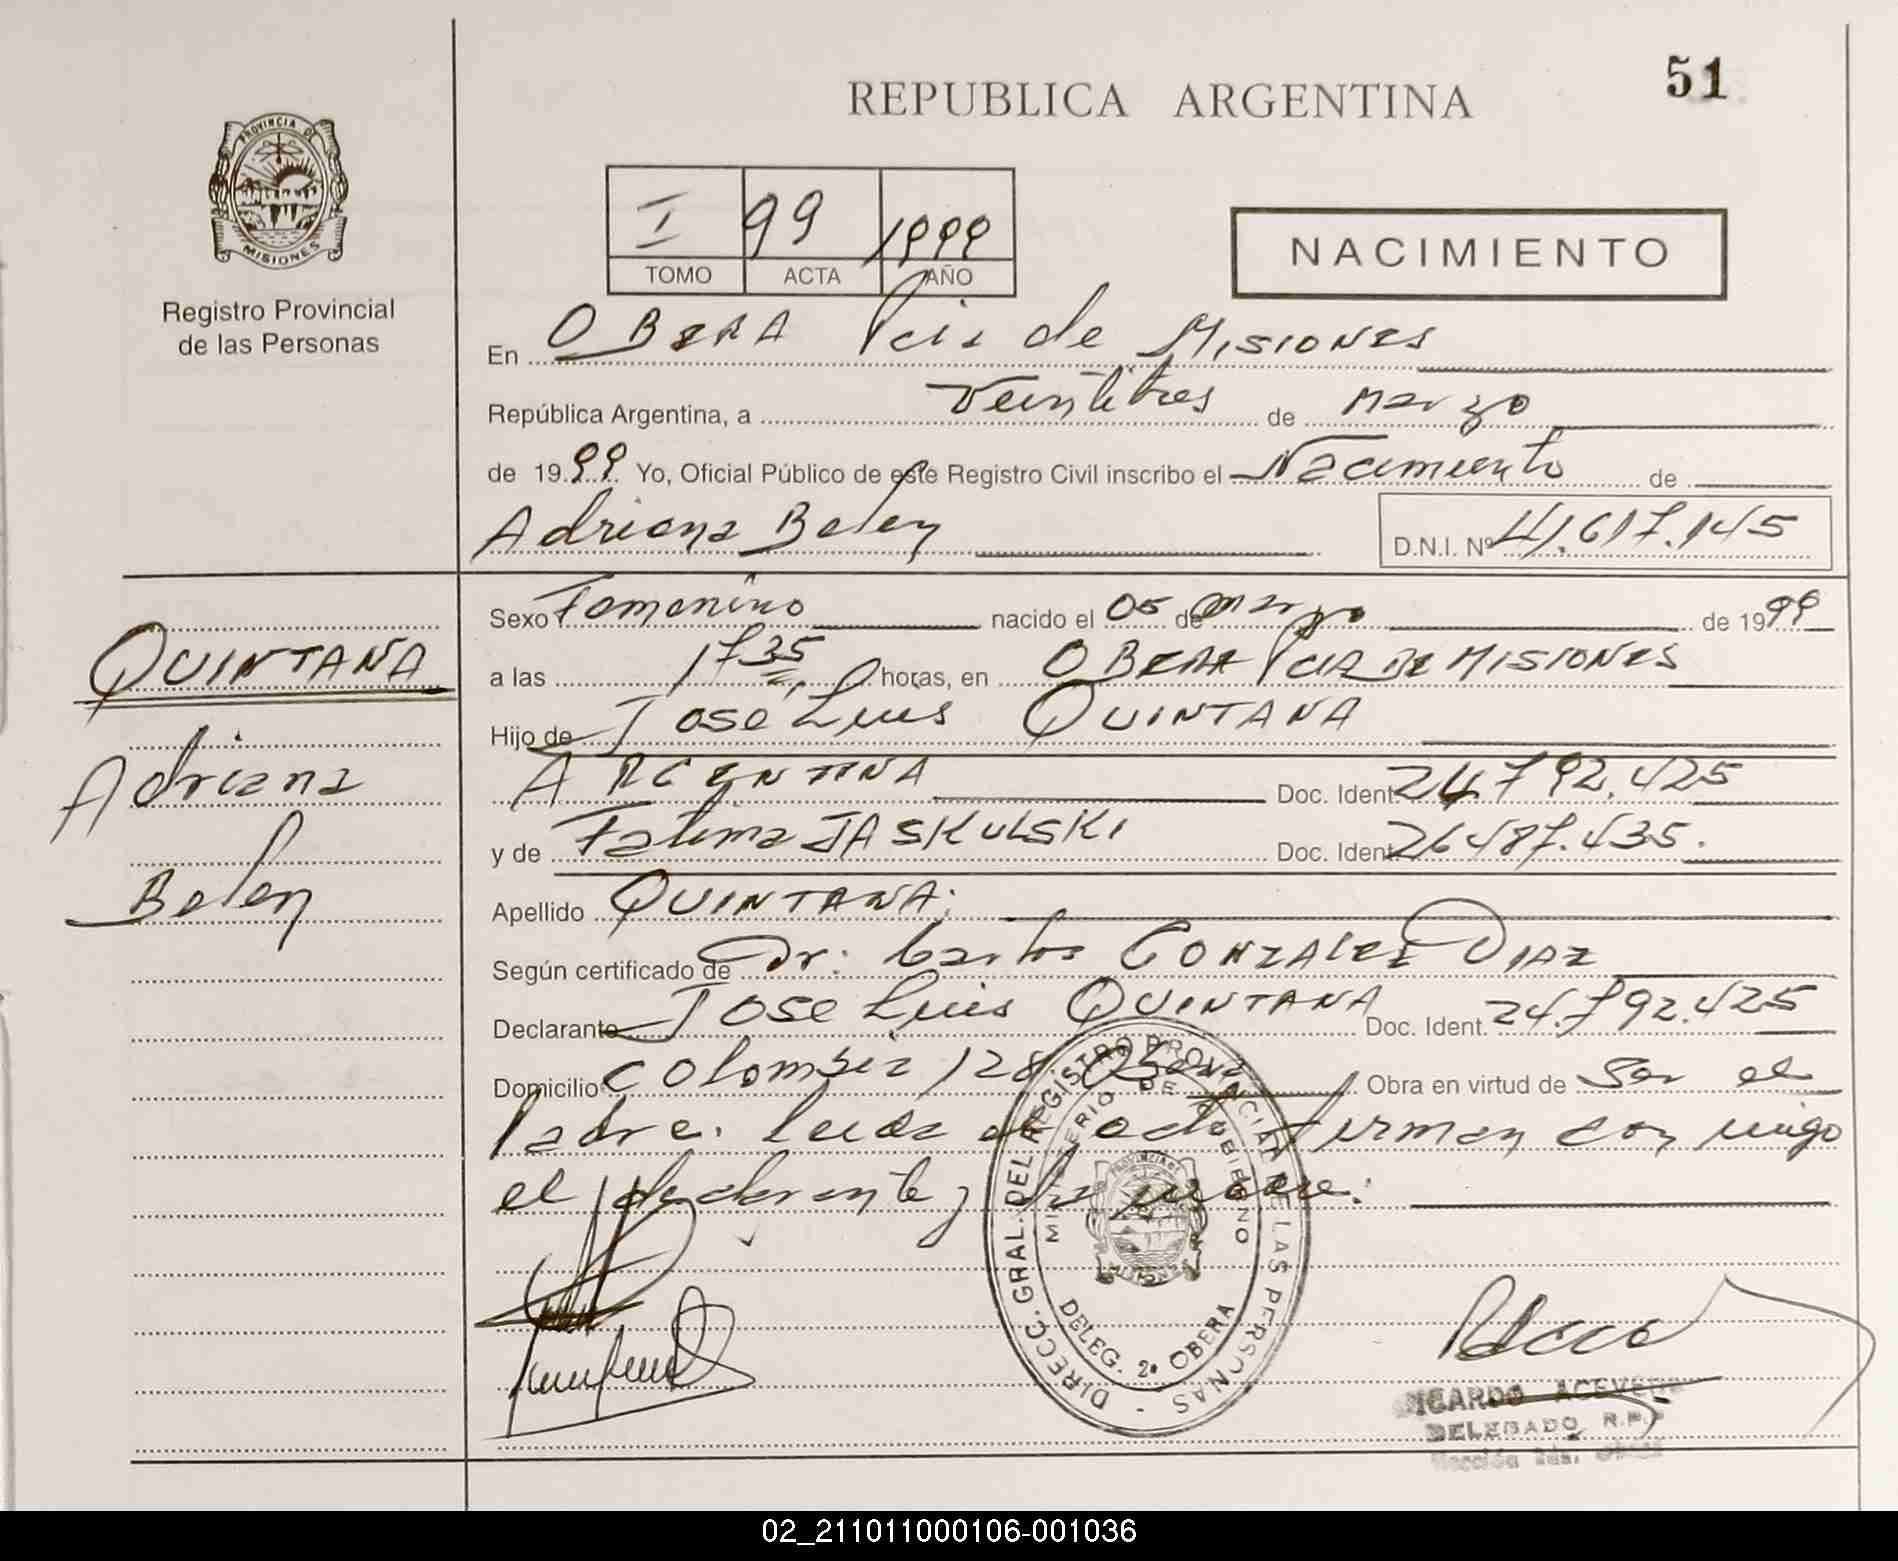 51
REPUBLICA ARGENTINA
PROVINCIA DE
MISIONES
Registro Provincial
de las Personas
I 99 1999
TOMO ACTA AÑO
NACIMIENTO
En OBERA Pcia de MISIONES
República Argentina, a Veintitres de marzo
de 1999 Yo, Oficial Público de este Registro Civil inscribo el Nacimiento de
Adriana Belen D.N.I. Nº 41.617.145
QUINTANA
Adriana
Belen
Sexo Femenino nacido el 05 de marzo de 1999
a las 1735 horas, en OBERA PCIA DE MISIONES
Hijo de Jose Luis QUINTANA
ARGENTINA Doc. Ident. 24.792.425
y de Fatima JASKULSKI Doc. Ident. 26487.435.
Apellido QUINTANA.
Según certificado de Dr. Carlos GONZALEZ DIAZ
Declarante Jose Luis QUINTANA Doc. Ident. 24.792.425
Domicilio Colombia 128 Obera Obra en virtud de Ser el
Padre. Leida el acta firman con migo
el declarante y la madre.
DIRECC. GRAL. DEL REGISTRO PROVINCIAL DE LAS PERSONAS -
MINISTERIO DE GOBIERNO
PROVINCIA DE
MISIONES
DELEG. 2ª OBERA
RICARDO ACEVEDO
DELEGADO R.P.P
Sección 2da. Obera
02_211011000106-001036